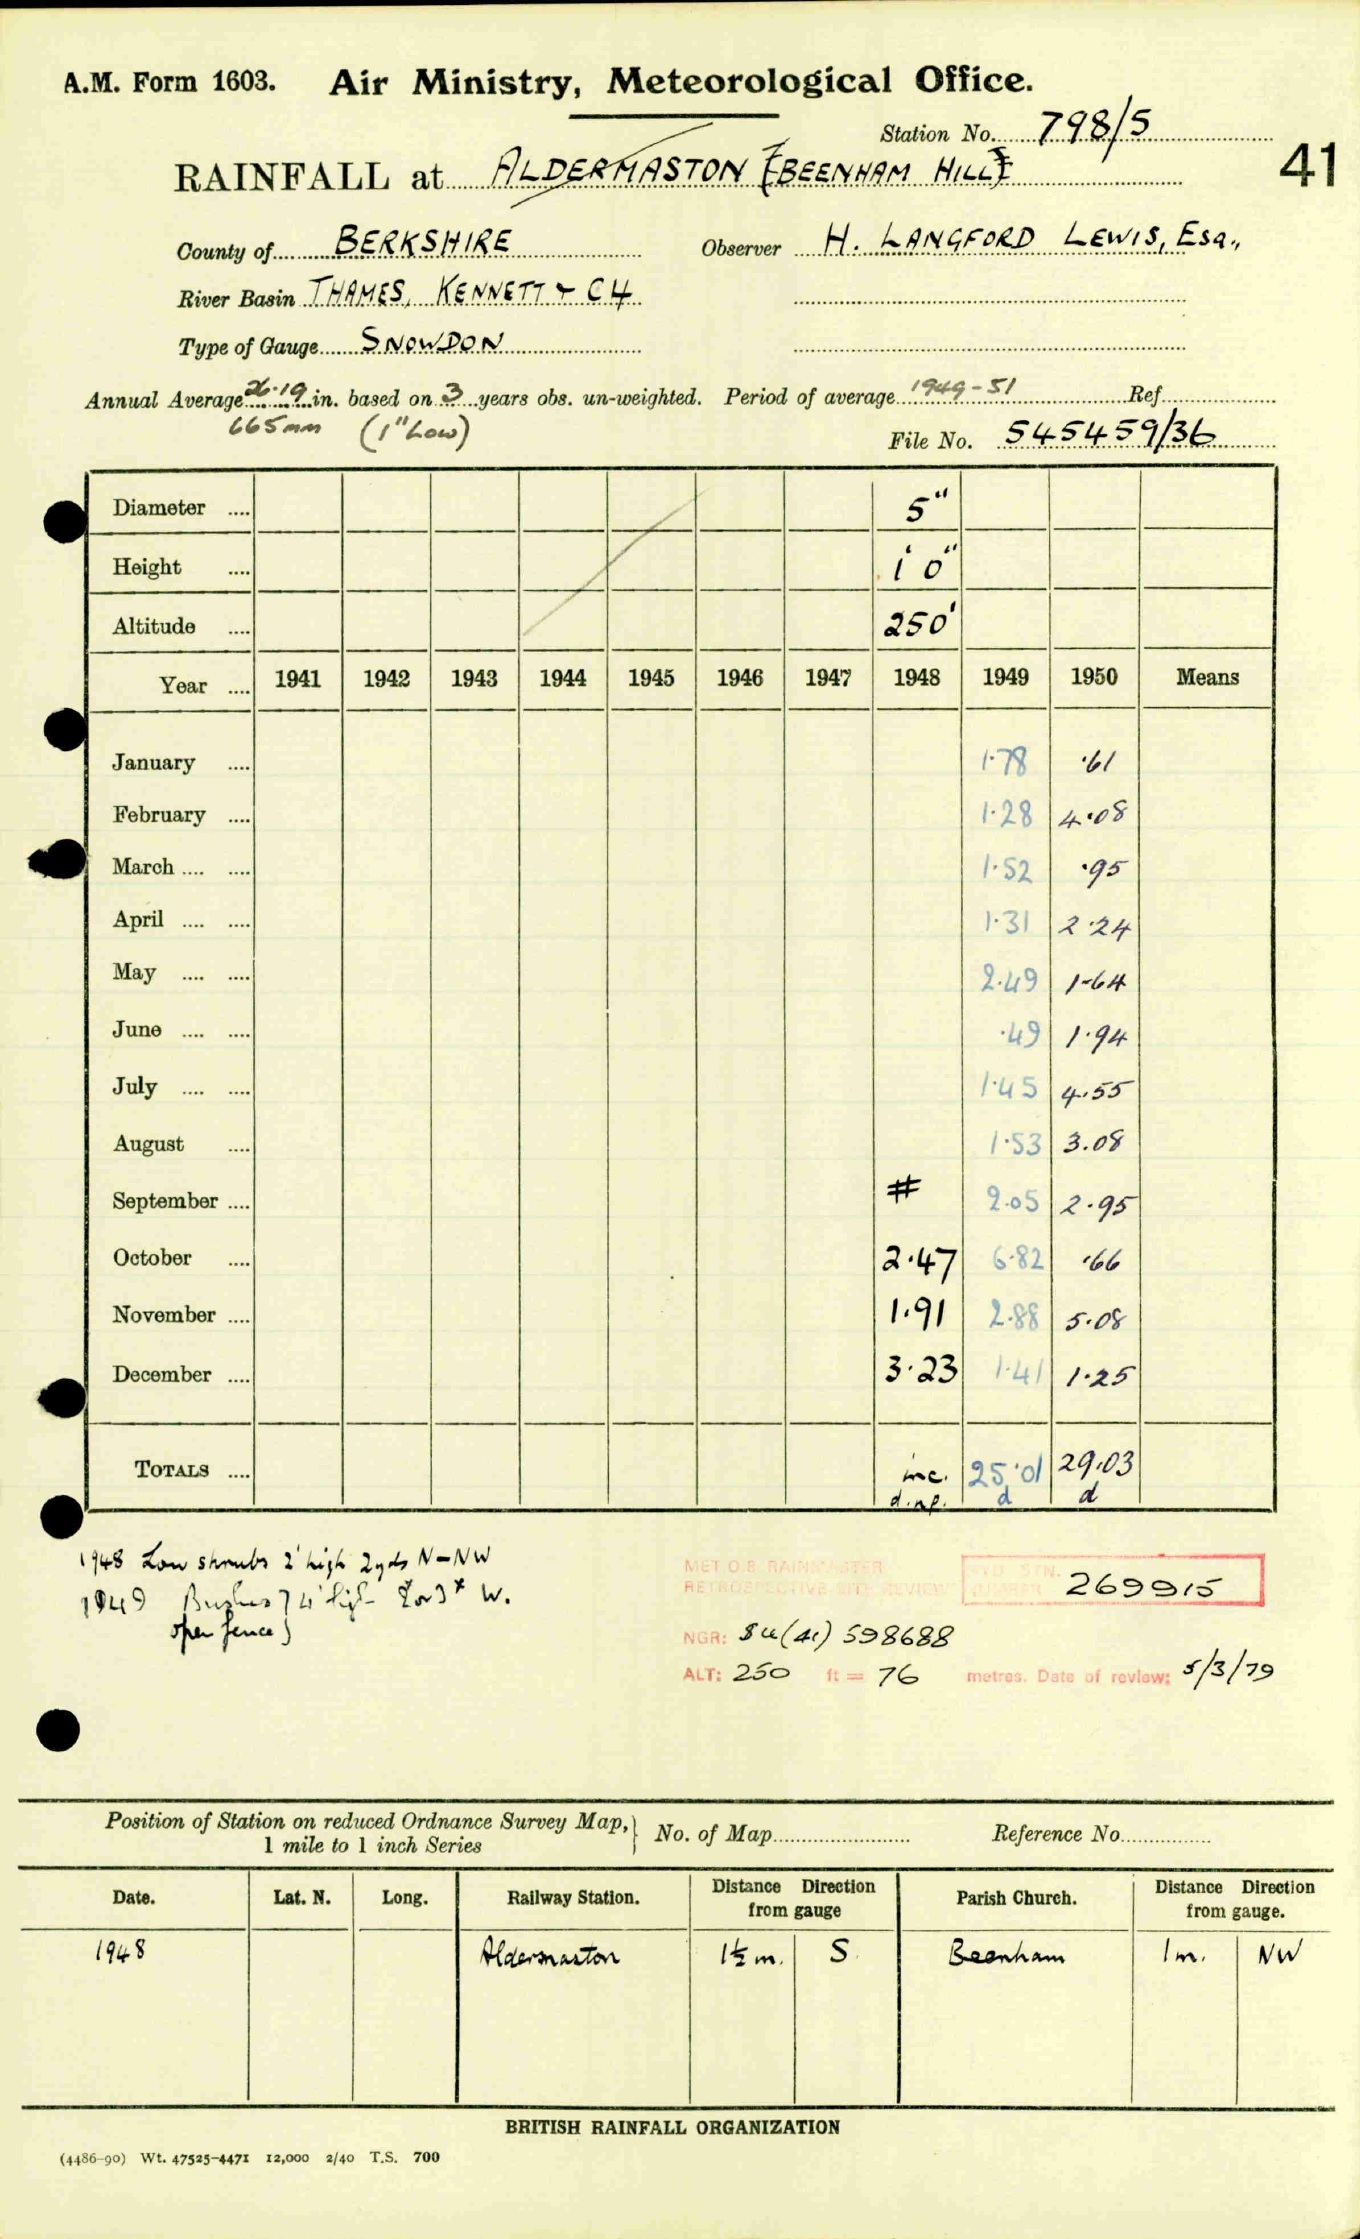 A.M. Form 1603. Air Ministry, Meteorological Office.
Station No. 798/5
41
RAINFALL at ALDERMASTON [BEENHAM HILL]
County of BERKSHIRE Observer H. LANGFORD LEWIS, ESQ.,
River Basin THAMES, KENNETT & C4
Type of Gauge SNOWDON
Annual Average 26.19 in. based on 3 years obs. un-weighted. Period of average 1949-51 Ref.
665mm (1" Low)
File No. 545459/36
Diameter .... 5"
Height .... 1' 0"
Altitude .... 250'
Year .... 1941 1942 1943 1944 1945 1946 1947 1948 1949 1950 Means
January .... 1.78 .61
February .... 1.28 4.08
March .... .... 1.52 .95
April .... .... 1.31 2.24
May .... .... 2.49 1.64
June .... .... .49 1.94
July .... .... 1.45 4.55
August .... 1.53 3.08
September .... # 2.05 2.95
October .... 2.47 6.82 .66
November .... 1.91 2.88 5.08
December .... 3.23 1.41 1.25
TOTALS .... inc. 25.01 29.03
d.n.p. d d
1948 Low shrubs 2' high 2yds N-NW
1949 Bushes } 4' high 2 or 3 x W.
open fence }
MET O.8 RAINMASTER
RETROSPECTIVE SITE REVIEW
STN. NUMBER 269915
NGR: SU(41) 598688
ALT: 250 ft = 76 metres. Date of review: 5/3/79
Position of Station on reduced Ordnance Survey Map, } No. of Map Reference No.
1 mile to 1 inch Series
Date. Lat. N. Long. Railway Station. Distance Direction from gauge Parish Church. Distance Direction from gauge.
1948 Aldermaston 1½ m. S. Beenham 1m. NW
BRITISH RAINFALL ORGANIZATION
(4486-90) Wt. 47525-4471 12,000 2/40 T.S. 700